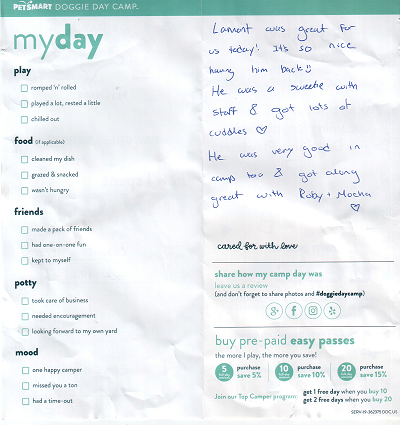 PETSMART DOGGIE DAY CAMP.
myday
play
romped 'n' rolled
played a lot, rested a little
chilled out
food (if applicable)
cleaned my dish
grazed & snacked
wasn't hungry
friends
made a pack of friends
had one-on-one fun
kept to myself
potty
took care of business
needed encouragement
looking forward to my own yard
mood
one happy camper
missed you a ton
had a time-out
Lamont was great for
us today! It's so nice
having him back
He was a sweetie with
staff & got lots of
cuddles ♡
He was very good in
camp too & got along
great with Roby + Mocha
♡
cared for with love
share how my camp day was
leave us a review
(and don't forget to share photos and #doggiedaycamp)
g+ f
buy pre-paid easy passes
the more I play, the more you save!
5 purchase
save 5%
10 purchase
save 10%
20 purchase
save 15%
Join our Top Camper program:
get 1 free day when you buy 10
get 2 free days when you buy 20
SERV-19-362375.DOC.US